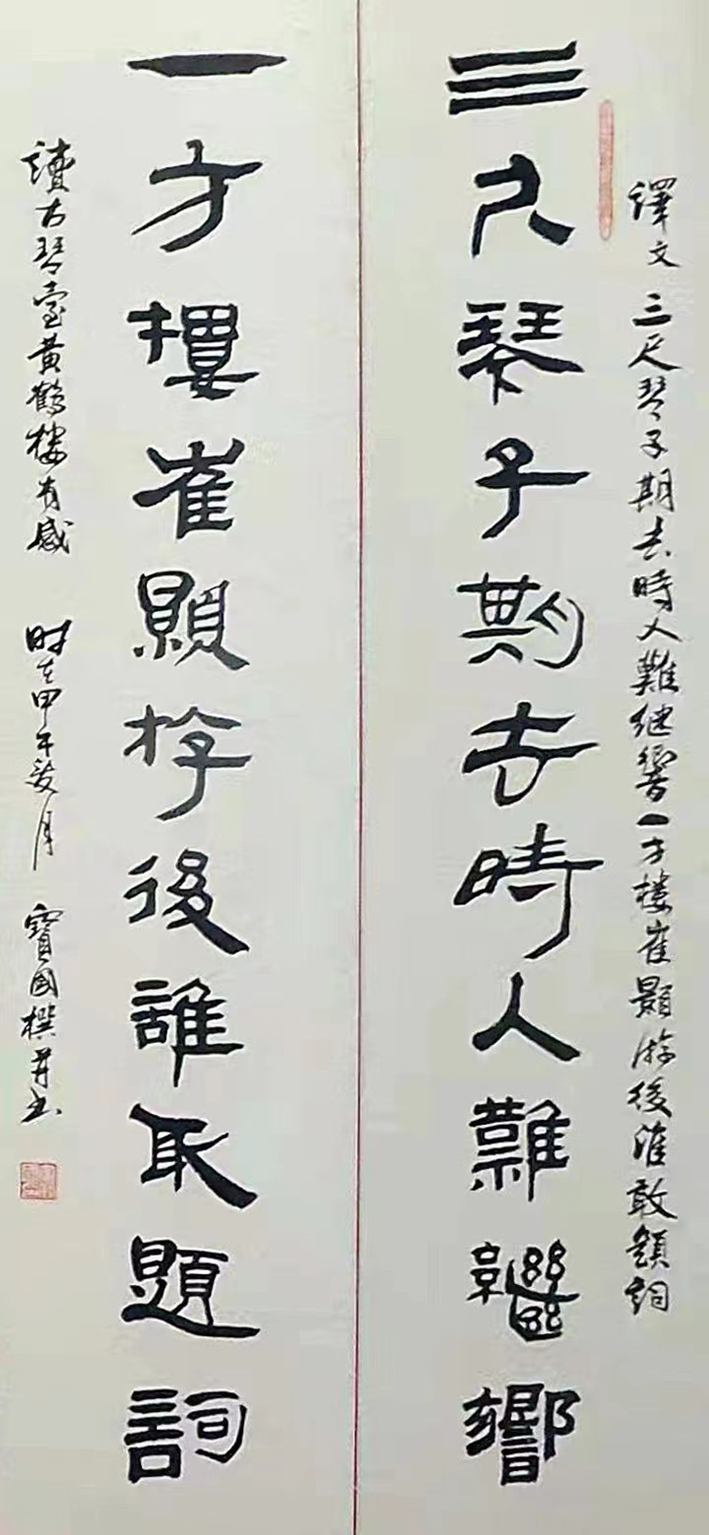 譯文 三尺琴子期去時人難继響一方樓崔顥游後誰敢題詞
三尺琴子期去時人難繼響
一方樓崔顥斿後誰敢題詞
讀古琴臺黄鶴樓有感 时在甲午夏月 寶國撰并书